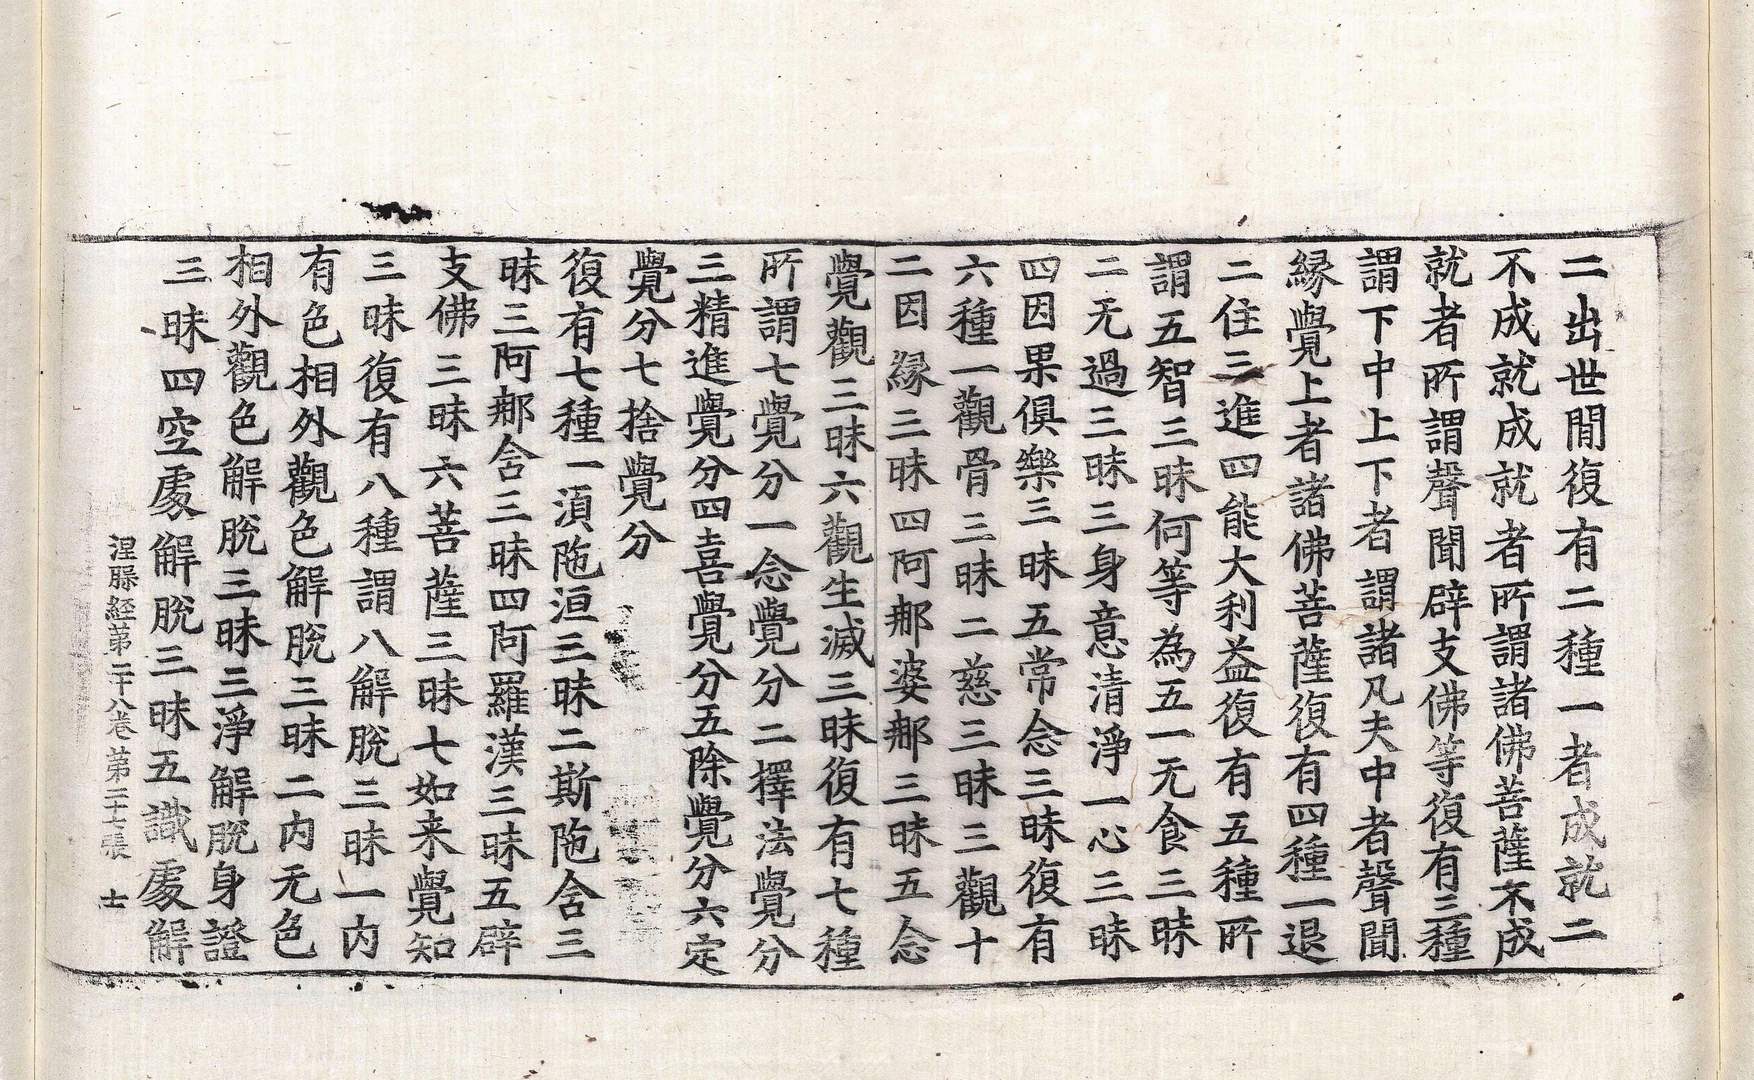 二出世閒復有二種一者成就二
不成就成就者所謂諸佛菩薩不成
就者所謂聲聞辟支佛等復有三種
謂下中上下者謂諸凡夫中者聲聞
縁覺上者諸佛菩薩復有四種一退
二住三進四能大利益復有五種所
謂五智三昧何等為五一无食三昧
二无過三昧三身意清淨一心三昧
四因果俱樂三昧五常念三昧復有
六種一觀骨三昧二慈三昧三觀十
二因縁三昧四阿那婆那三昧五念
覺觀三昧六觀生滅三昧復有七種
所謂七覺分一念覺分二擇法覺分
三精進覺分四喜覺分五除覺分六定
覺分七捨覺分
復有七種一湏陁洹三昧二斯陁含三
昧三阿那含三昧四阿羅漢三昧五辟
支佛三昧六菩薩三昧七如来覺知
三昧復有八種謂八解脫三昧一内
有色相外觀色解脫三昧二内无色
相外觀色解脫三昧三淨解脫身證
三昧四空處解脫三昧五識處解
涅槃経第二十八卷 第二十七張 士